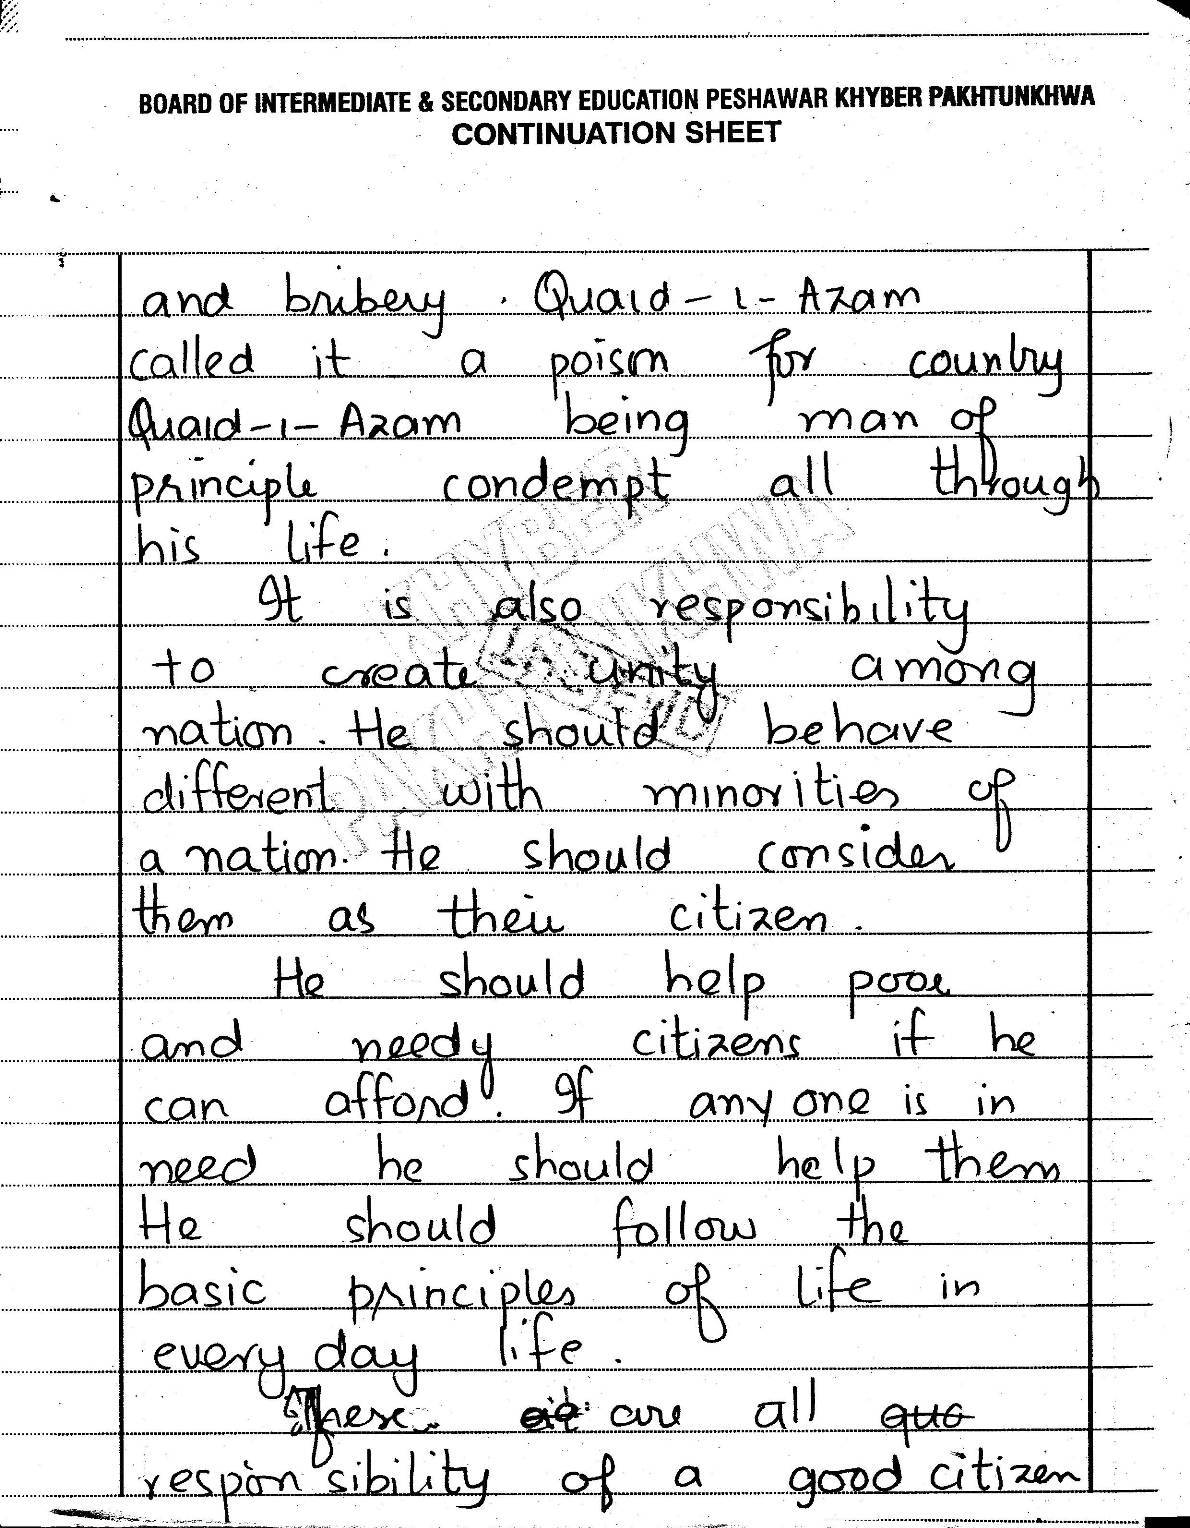 BOARD OF INTERMEDIATE & SECONDARY EDUCATION PESHAWAR KHYBER PAKHTUNKHWA
CONTINUATION SHEET
and bribery . Quaid-i-Azam
called it a poison for country
Quaid-i-Azam being man of
principle condempt all through
his life.
It is also responsibility
to create unity among
nation. He should behave
different with minorities of
a nation. He should consider
them as their citizen.
He should help poor
and needy citizens if he
can afford. If any one is in
need he should help them
He should follow the
basic principles of life in
every day life.
These are all
responsibility of a good citizen
KHYBER
PAKHTUNKHWA